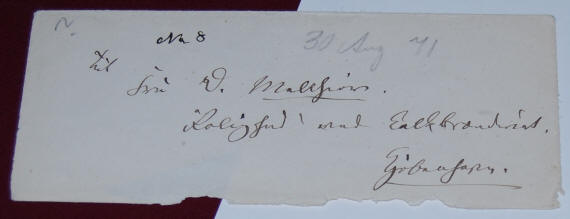 No 8 30 Aug 71
Til
Fru D. Melchior.
Rolighed ved Kalkbrænderiet.
Kjøbenhavn.